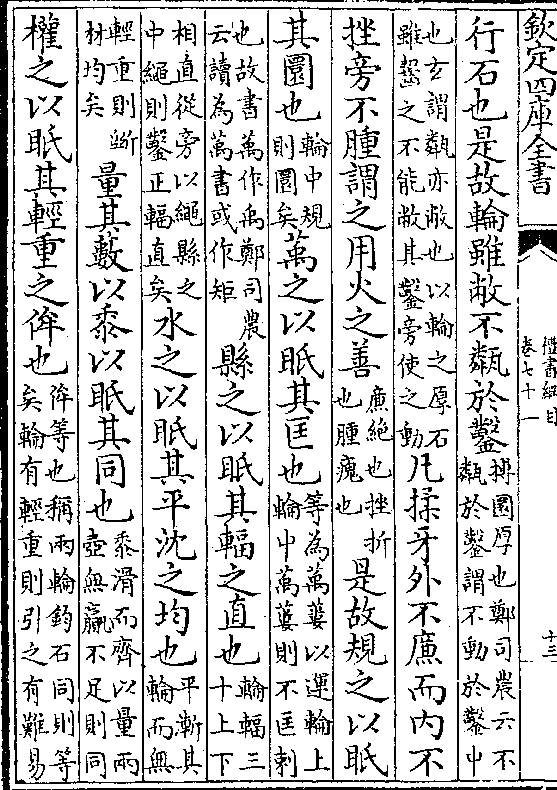 欽定四庫全書
禮書綱目
卷七十一
十三
行石也是故輪雖敝不甐於鑿摶圜厚也鄭司農云不甐於鑿謂不動於鑿中
也玄謂甐亦敝也以輪之厚石雖齧之不能敝其鑿旁使之動凡揉牙外不廉而内不
挫旁不腫謂之用火之善廉絶也挫折也腫瘣也是故規之以眡
其圜也輪中規則圜矣萬之以眡其匡也等為萬蔞以運輪上輪中萬蔞則不匡刺
也故書萬作禹鄭司農云讀為萬書或作矩縣之以眡其輻之直也輪輻三十上下
相直從旁以繩縣之中繩則鑿正輻直矣水之以眡其平沈之均也平漸其輪而無
輕重則斵材均矣量其藪以黍以眡其同也黍滑而齊以量兩壺無贏不足則同
權之以眡其輕重之侔也侔等也稱兩輪鈞石同則等矣輪有輕重則引之有難易